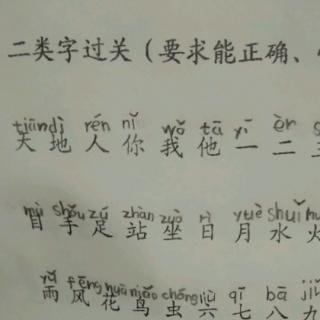 二类字过关（要求能正确、
tiāndì rén nǐ wǒ tā yī èr
天地人你我他一二三
mù shǒu zú zhàn zuò rì yuè shuǐ hu
目手足站坐日月水火
yǔ fēng huā niǎo chóng liù qī bā jiǔ
雨风花鸟虫六七八九